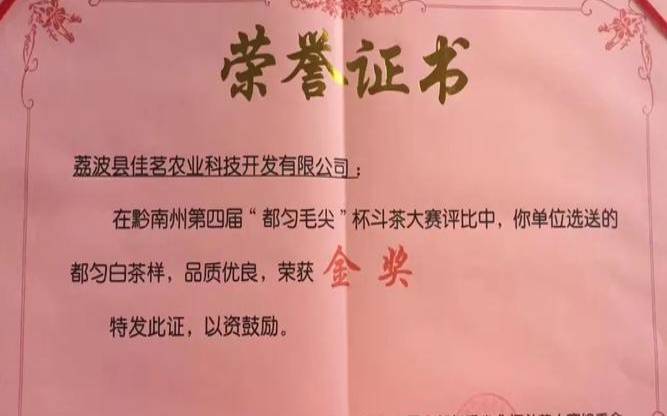 荣誉证书
荔波县佳茗农业科技开发有限公司：
在黔南州第四届“都匀毛尖”杯斗茶大赛评比中，你单位选送的
都匀白茶样，品质优良，荣获 金奖
特发此证，以资鼓励。